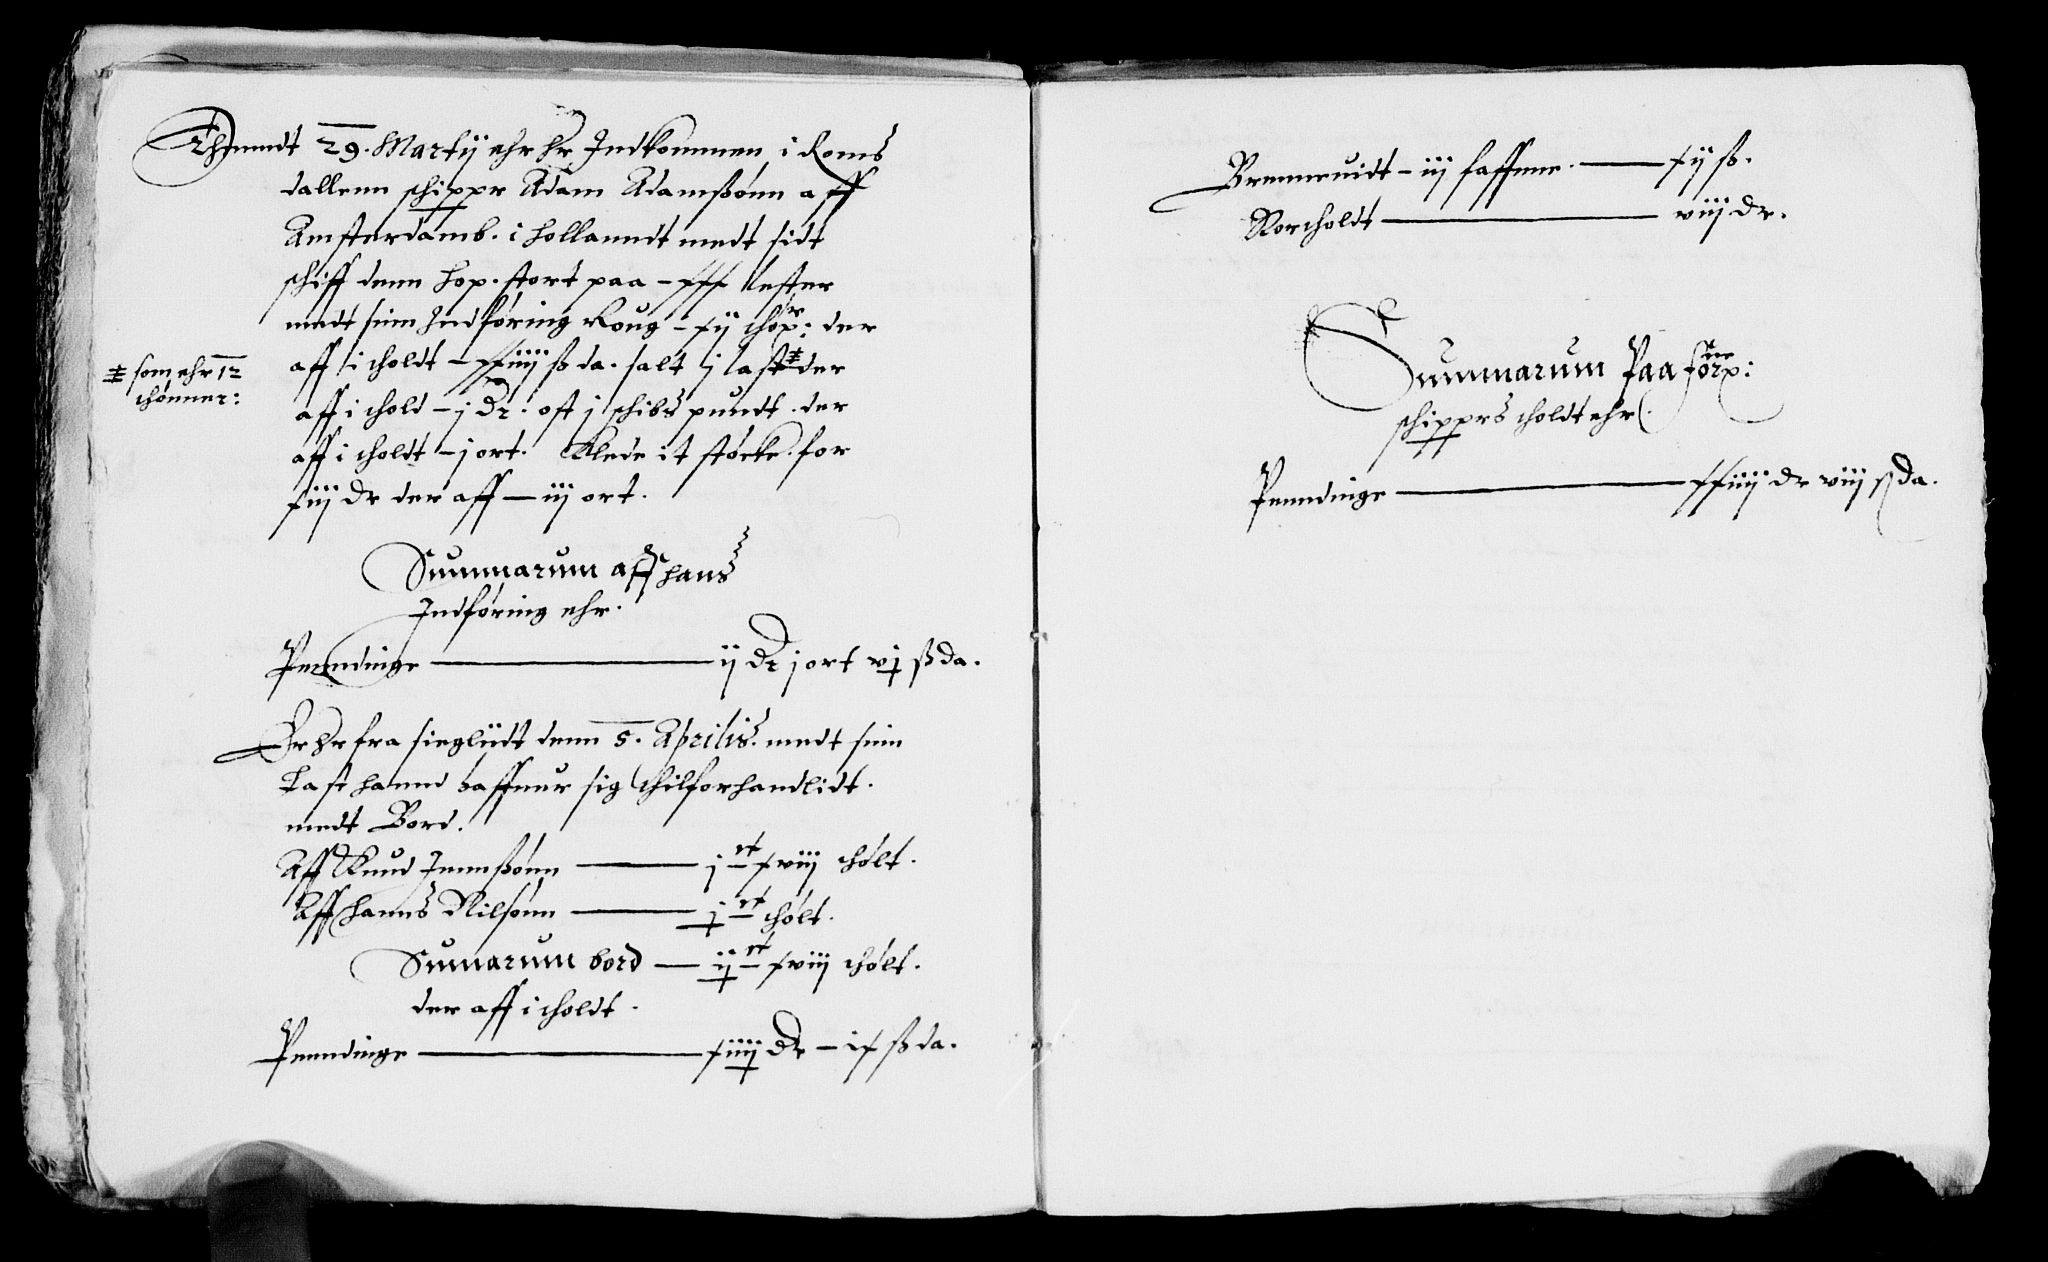 Thiendt 29. Martij ehr hr Indkommen i Roms
dallenn schippr Adam Adamßønn aff
Amsterdamb. i hollanndt medt sidt
schiff denn hop. stort paa - xxx lester
medt sinn Indføring Roug - xij thøŕ: der
aff i tholdt - xxiiij ß da. salt j last ‡ der
‡ som ehr 12
thønner:
aff i thold - j Dr. ost j schibs pundt. der
aff i tholdt - j ort. Klede it støcke. for
xiij Dr der aff - iij ort.
Summarum aff hans
Indføring ehr.
Penndinge ij Dr j ort vj ß da.
Er hr fra siegliidt denn 5. Aprilis. medt sinn
Last hannd haffuer sig thilforhandlidt.
medt Bord.
Aff Knud Jennßønn j rt xviij thølt.
Aff hanns Nilsønn j rt thølt.
Sumarum bord - ij rt xviij thølt.
der aff i tholdt.
Penndinge xiiij Dr - ix ß da.
Brenneuidt - iij faffnne. xij ß.
Norcholdt viij Dr.
Summarum Paa forne:
schipprs tholdt ehr.
Penndinge xxiiij Dr viij ß da.